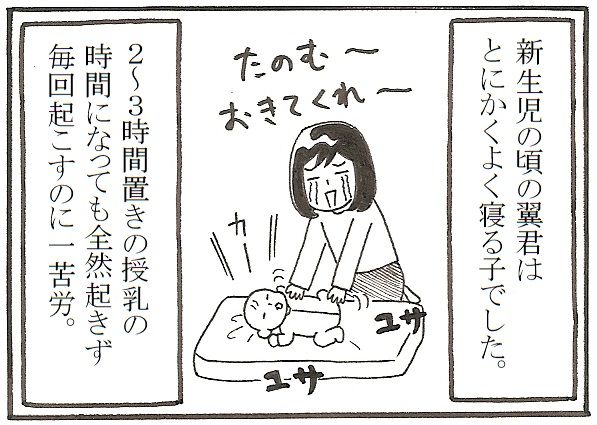 新生児の頃の翼君は
とにかくよく寝る子でした。
たのむ〜
おきてくれ〜
カー
ユサ
ユサ
2〜3時間置きの授乳の
時間になっても全然起きず
毎回起こすのに一苦労。